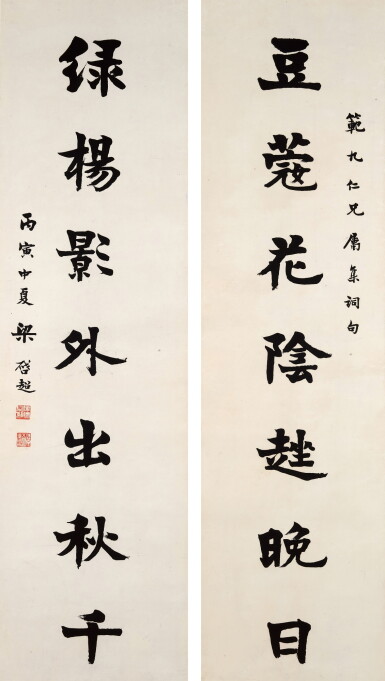 範九仁兄属集詞句
豆蔻花陰趖晚日
緑楊影外出秋千
丙寅中夏梁啓超